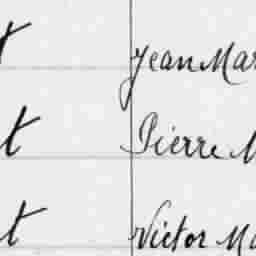 t Jean Mar
t Pierre M
t Victor Ma